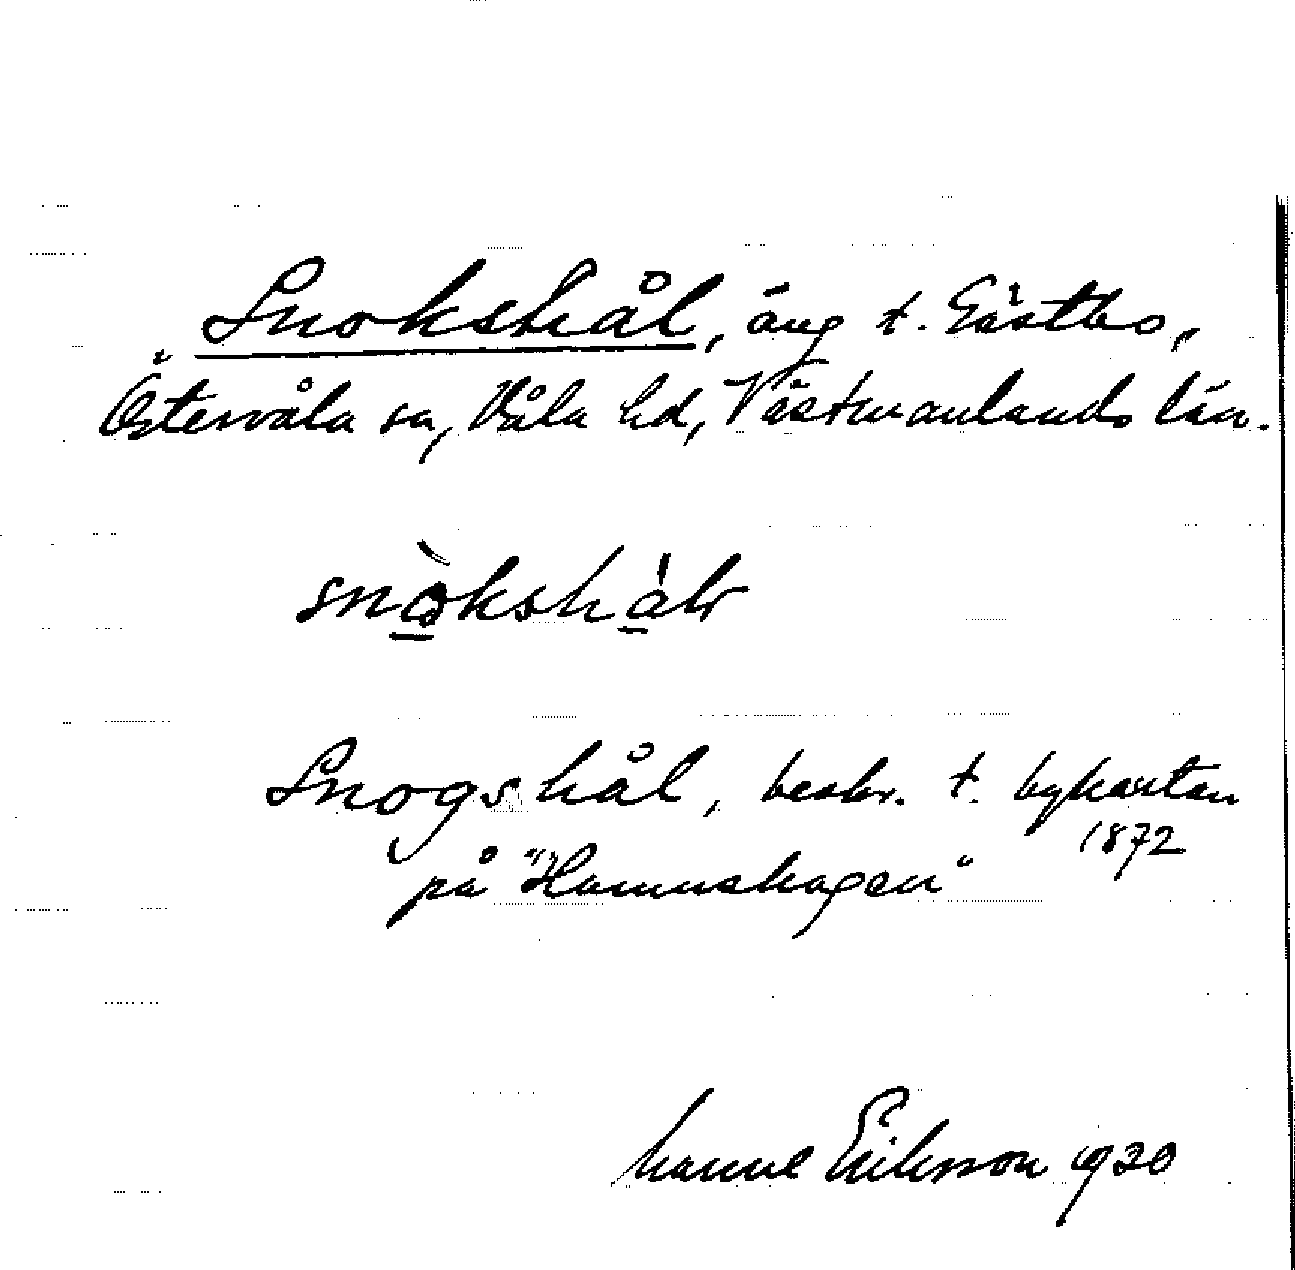 Snokshål, äng t. Gästbo,
Östervåla sn, Våla hd, Västmanlands län.
snòkshålr
Snogshål, beskr. t. bykartan
1872
på "Hamnshagen"
Manne Eriksson 1930